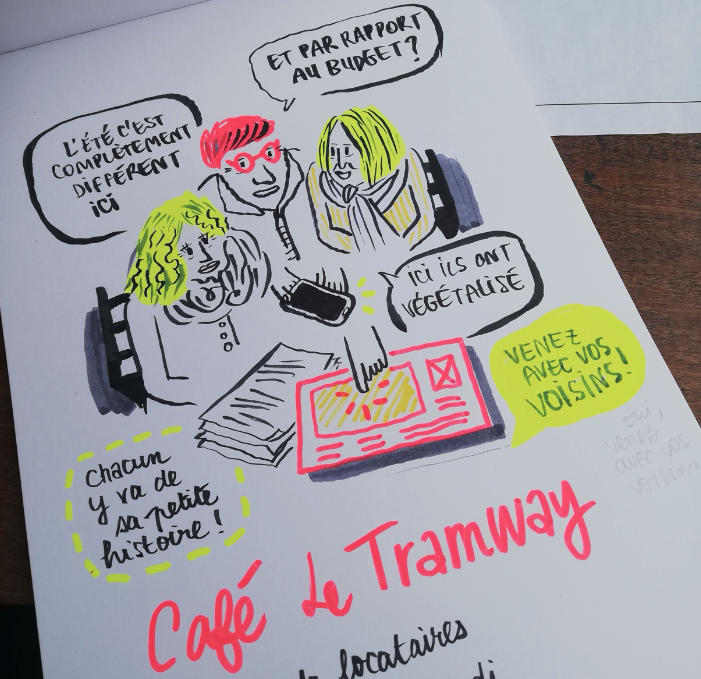 ET PAR RAPPORT
AU BUDGET?
L'ÉTÉ C'EST
COMPLÈTEMENT
DIFFÉRENT
ICI
ICI ILS ONT
VÉGÉTALISÉ
VENEZ
AVEC VOS
VOISINS!
oui,
venez
avec vos
voisins
Chacun
y va de
sa petite
histoire!
Café Le Tramway
locataires